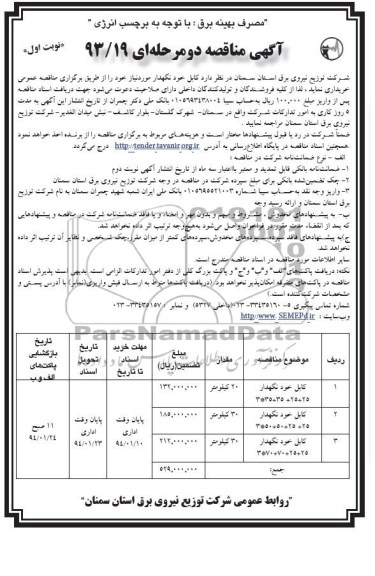 "مصرف بهینه برق : با توجه به برچسب انرژی"
آگهی مناقصه دومرحله‌ای ۹۳/۱۹
"نوبت اول"
شرکت توزیع نیروی برق استان سمنان در نظر دارد کابل خود نگهدار موردنیاز خود را از طریق برگزاری مناقصه عمومی
خریداری نماید ، لذا از کلیه فروشندگان و تولیدکنندگان داخلی دارای صلاحیت دعوت می‌شود جهت دریافت اسناد مناقصه
پس از واریز مبلغ ۱۰۰,۰۰۰ ریال به‌حساب سیبا ۰۱۰۵۶۹۳۴۳۸۰۰۴ بانک ملی دکتر چمران از تاریخ انتشار این آگهی به مدت
۵ روز کاری به امور تدارکات شرکت واقع در سمنان- شهرک گلستان- بلوار کاشف- نبش میدان الغدیر- شرکت توزیع
نیروی برق استان سمنان مراجعه نمایید .
ضمناً شرکت در رد یا قبول پیشنهادها مختار است و هزینه‌های مربوط به برگزاری مناقصه را از برنده اخذ خواهد نمود
همچنین اسناد مناقصه در پایگاه اطلاع‌رسانی به آدرس http://tender.tavanir.org.ir درج می‌گردد.
الف - نوع ضمانت‌نامه شرکت در مناقصه :
۱- ضمانت‌نامه بانکی قابل تمدید و معتبر بااعتبار سه ماه از تاریخ انتشار آگهی نوبت دوم
۲- چک تضمین‌شده بانکی برای مبلغ سپرده شرکت در مناقصه در وجه شرکت توزیع نیروی برق استان سمنان
۳- واریز وجه نقد به‌حساب سیبا شماره ۰۱۰۵۶۹۵۵۲۱۰۰۳ بانک ملی ایران شعبه شهید چمران سمنان به نام شرکت توزیع
برق استان سمنان و ارائه رسید وجه
ب- به پیشنهادهای مخدوش ، مشروط و مبهم و بدون مهر و امضاء و یا فاقد ضمانت‌نامه شرکت در مناقصه و پیشنهادهایی
که بعد از انقضاء مدت مقرر در فراخوان واصل می‌شود به‌هیچ‌وجه ترتیب اثر داده نخواهد شد.
ج) به پیشنهادهای فاقد سپرده، سپرده‌های مخدوش، سپرده‌های کمتر از میزان مقرر، چک شخصی و نظایر آن ترتیب اثر داده
نخواهد شد.
سایر اطلاعات مورد مناقصه در اسناد مناقصه مندرج است.
نکته: دریافت پاکت‌های"الف" و"ب" و"ج" و پاکت بزرگ کلی از دفتر امور تدارکات الزامی است. بدیهی است پذیرش اسناد
مناقصه در پاکت‌های متفرقه امکان‌پذیر نخواهد بود. (دریافت پاکت‌ها منوط به ارسال فیش واریزی(نمابر) با آدرس پستی و
مشخصات شرکت‌کننده است.)
شماره تماس پیگیری ۵-۰۲۳-۳۳۴۳۵۱۶۰ (داخلی ۵۳۲۷) و نمابر ۰۲۳-۳۳۴۳۵۱۷۰
وب‌سایت : http://www.SEMEPd.ir
ParsNamadData
ردیف | موضوع مناقصه | مقدار | مبلغ تضمین(ریال) | مهلت خرید اسناد تا تاریخ | تاریخ تحویل اسناد | تاریخ بازگشایی پاکت‌های الف و ب
۱ | کابل خود نگهدار ۳*۳۵+۳۵+۲۵+۲۵ | ۲۰ کیلومتر | ۱۳۲,۰۰۰,۰۰۰ | پایان وقت اداری ۹۴/۰۱/۱۰ | پایان وقت اداری ۹۴/۰۱/۲۳ | ۱۱ صبح ۹۴/۰۱/۲۴
۲ | کابل خود نگهدار ۳*۵۰+۵۰+۲۵+۲۵ | ۳۰ کیلومتر | ۱۸۵,۰۰۰,۰۰۰
۳ | کابل خود نگهدار ۳*۷۰+۷۰+۲۵+۲۵ | ۳۰ کیلومتر | ۲۱۲,۰۰۰,۰۰۰
جمع: | ۵۲۹,۰۰۰,۰۰۰
"روابط عمومی شرکت توزیع نیروی برق استان سمنان"